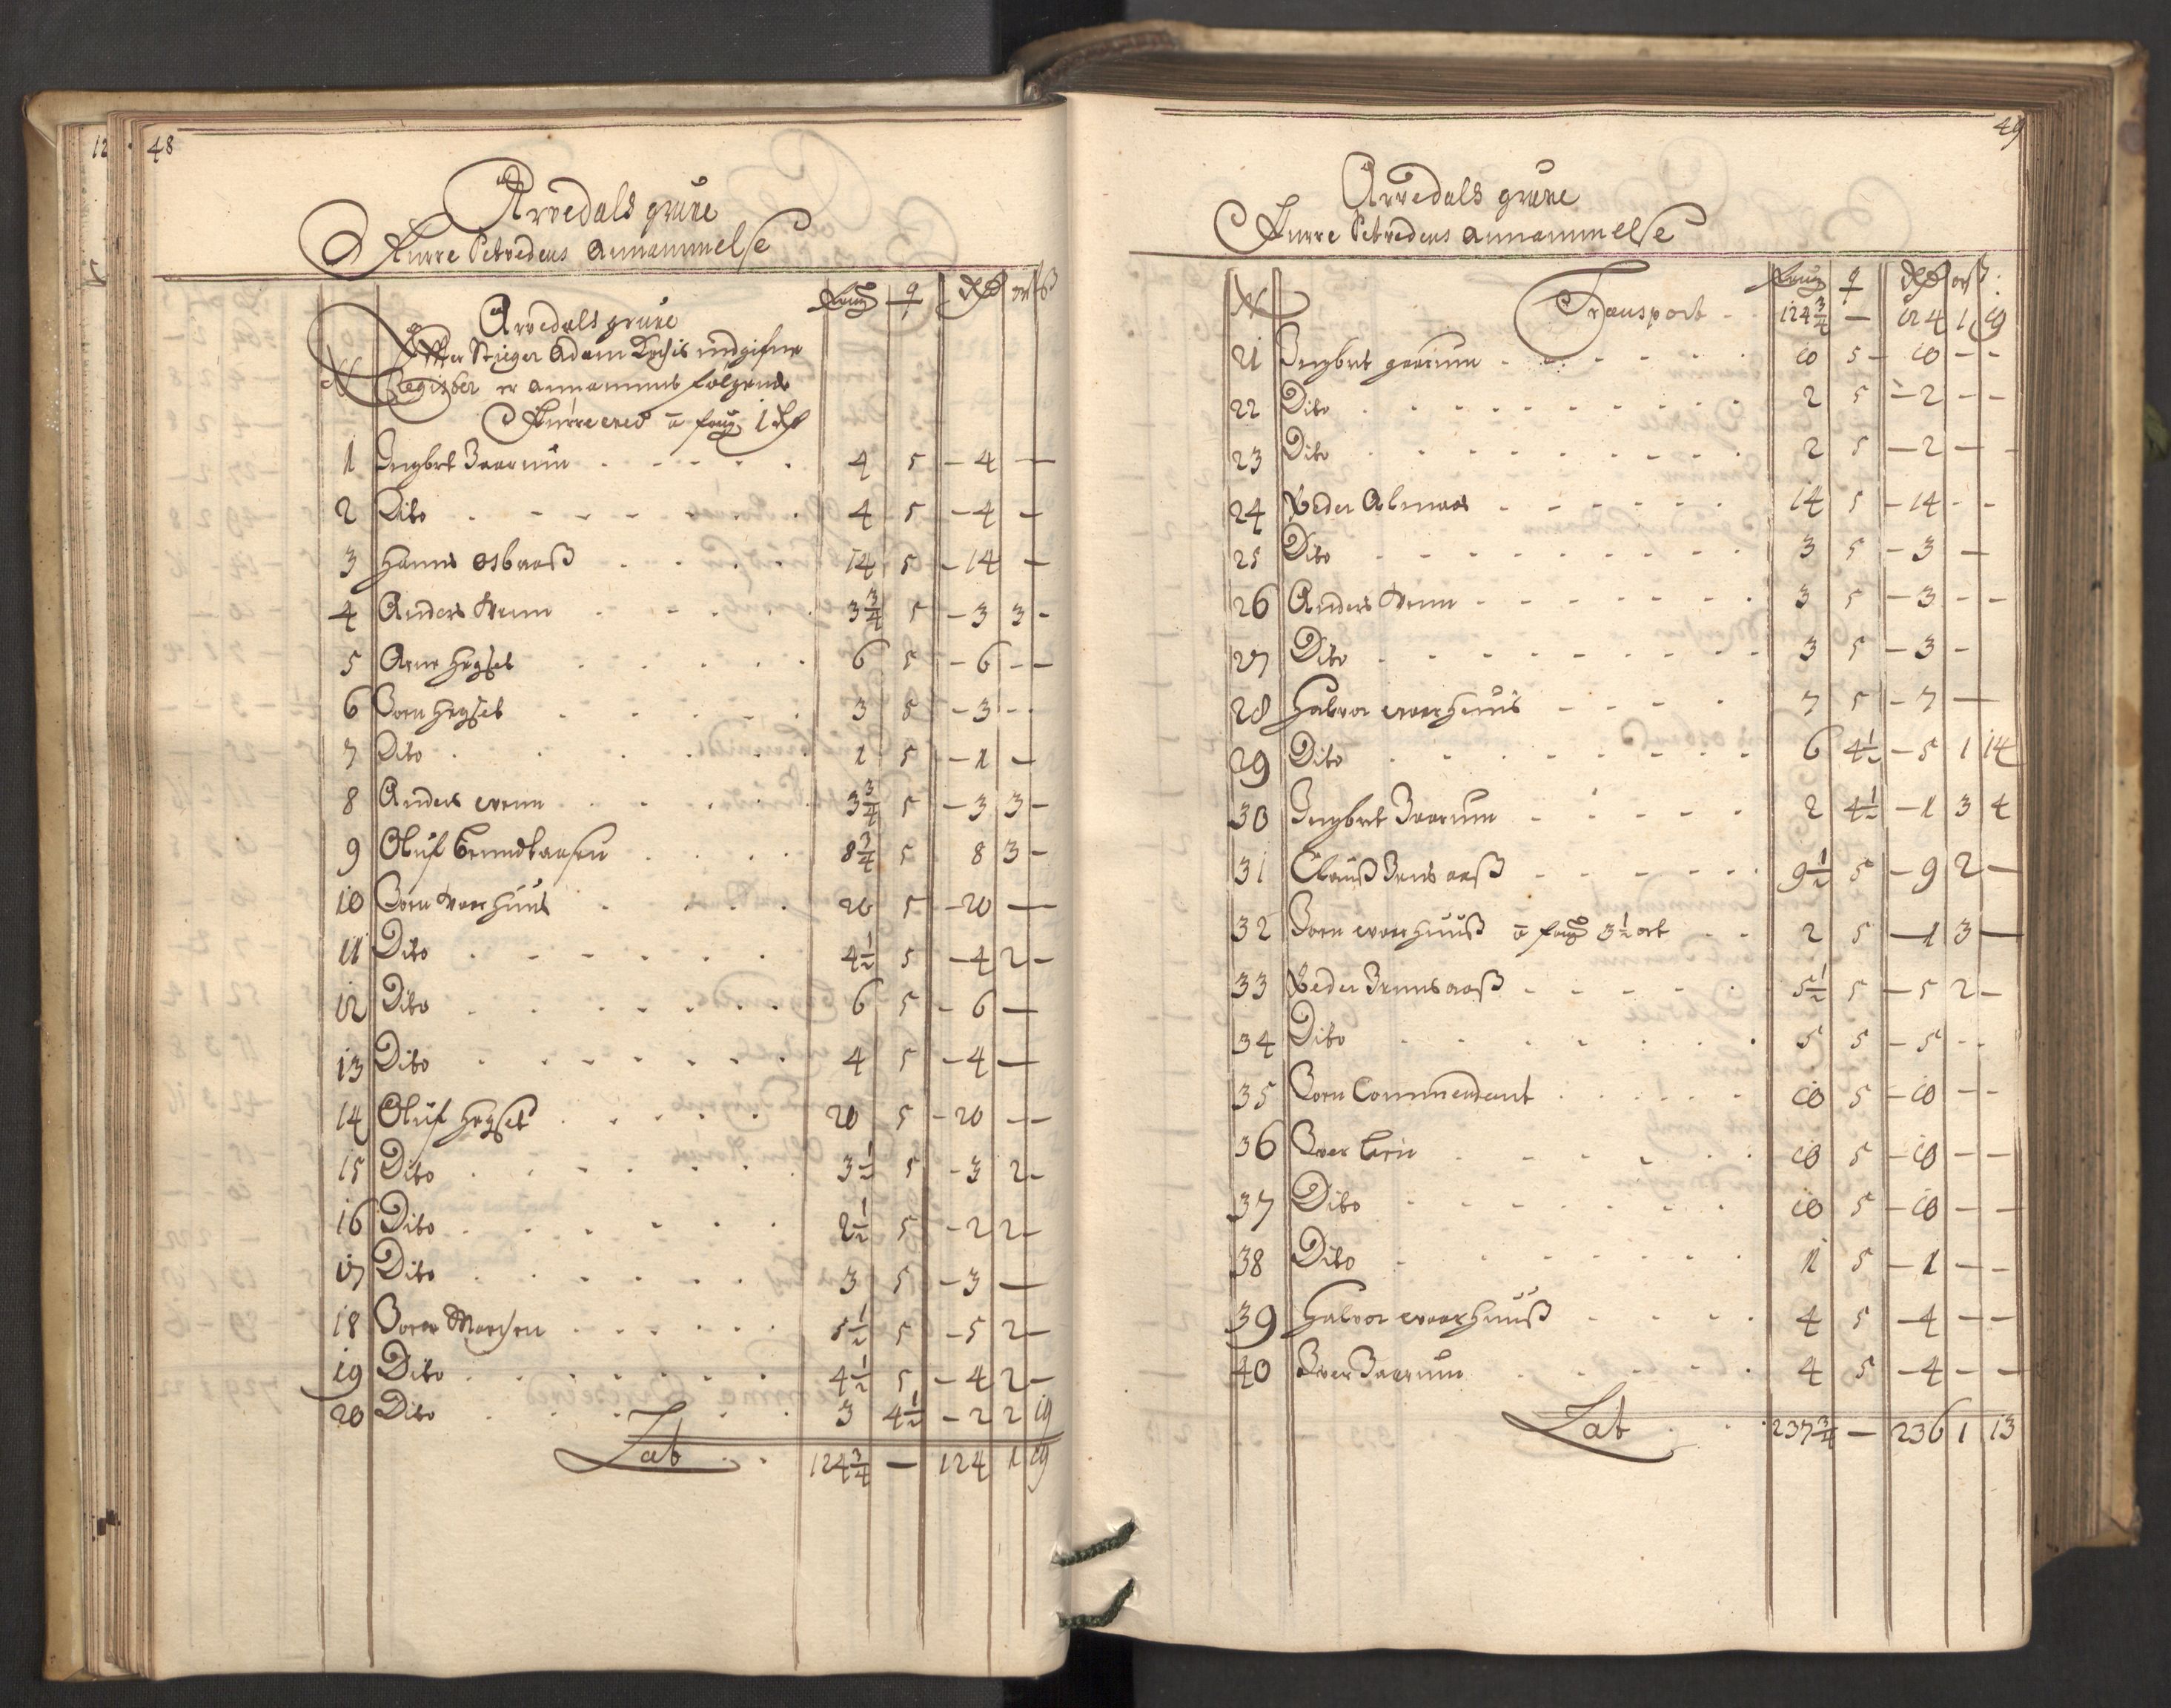 12
48
Arvedals grube
Kurre Setvedens Annammelse
faug q Rdr ort ß
Arvedals grube
Effter Stieger Adam Dychs indgifne
N Register er annammet følgende
Kurreved a faug 1 Rdr
1 Ingbrt Baarum 4 5 - 4 -
2 Dito 4 5 - 4 -
3 Hanns Osbaaß 14 5 - 14 -
4 Anders Venn 3 3/4 5 - 3 3 -
5 Arne Hegset 6 5 - 6 - -
6 Joen Hegset 3 5 - 3 - -
7 Dito 1 5 - 1 -
8 Anders Venn 3 3/4 5 - 3 3 -
9 Oluf 8 3/4 5 8 3 -
10 Joen Vaarhuus 20 5 - 20 -
11 Dito 4 1/2 5 - 4 2 -
12 Dito 6 5 - 6 -
13 Dito 4 5 - 4 -
14 Oluf Hegset 20 5 - 20 - -
15 Dito 3 1/2 5 - 3 2 -
16 Dito 2 1/2 5 - 2 2 -
17 Dito 3 5 - 3 -
18 Joen 5 1/2 5 - 5 2 -
19 Dito 4 1/2 5 - 4 2 -
20 Dito 3 4 1/2 - 2 2 19
Lat 124 3/4 - 124 1 19
49
Arvedals grube
Kurre Setvedens annammelse
N faug q Rdr ort ß
Transport 124 3/4 - 124 1 19
21 Ingbrt Baarum 10 5 - 10 - -
22 Dito 2 5 - 2 - -
23 Dito 2 5 - 2 - -
24 Peder Almaas 14 5 - 14 - -
25 Dito 3 5 - 3 -
26 Anders Venn 3 5 - 3 - -
27 Dito 3 5 - 3 -
28 Halvor Vaarhuus 7 5 - 7 -
29 Dito 6 4 1/2 - 5 1 14
30 Ingbrt Baarum 2 4 1/2 - 1 3 4
31 Clauß Bensaaß 9 1/2 5 - 9 2 -
32 Joen Vaarhuuß a faug 3 1/2 ort 2 5 - 1 3 -
33 Peder Bensaaß 5 1/2 5 - 5 2 -
34 Dito 5 5 - 5 - -
35 Joen Commendant 10 5 - 10 - -
36 Iver Lien 10 5 - 10 - -
37 Dito 10 5 - 10 - -
38 Dito 1 5 - 1 - -
39 Halvor Vaarhuuß 4 5 - 4 - -
40 Iver Baarum 4 5 - 4 - -
Lat 237 3/4 - 236 1 13